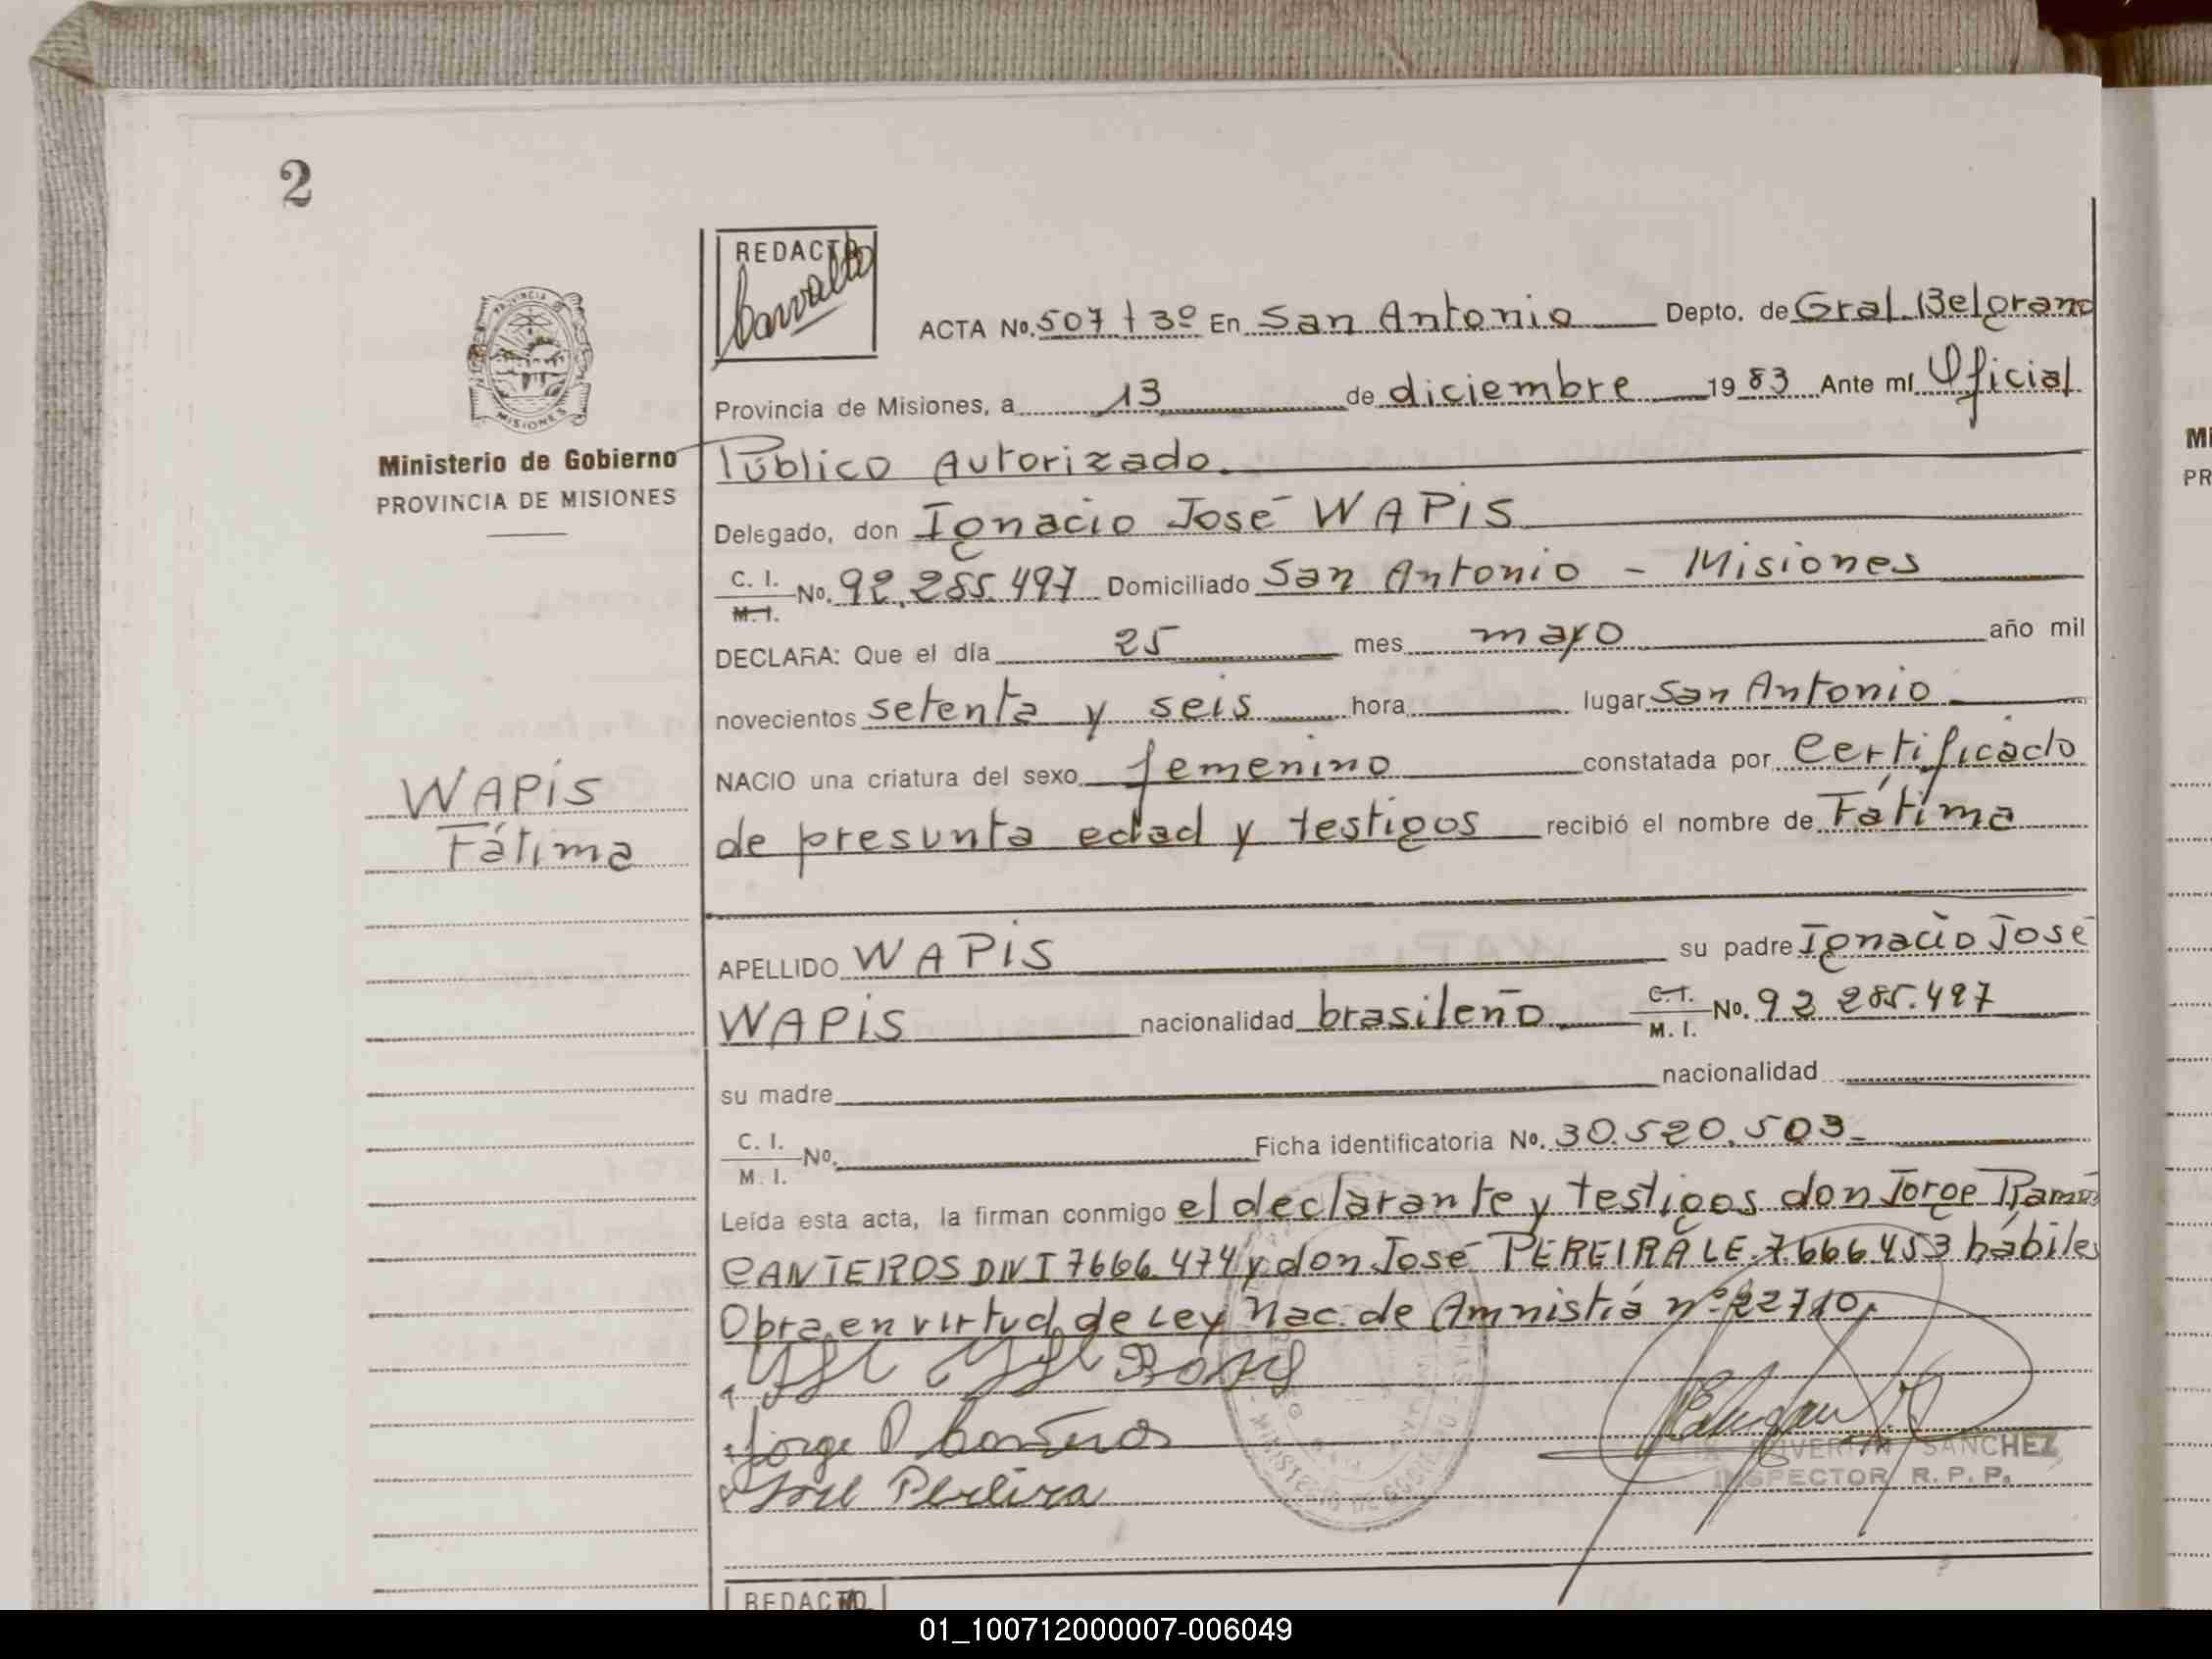 2
REDACTO
Carvallo
PROVINCIA DE
MISIONES
Ministerio de Gobierno
PROVINCIA DE MISIONES
ACTA No. 507 t 3º En San Antonio Depto. de Gral Belgrano
Provincia de Misiones, a 13 de diciembre 1983 Ante mí Oficial
Público Autorizado.
Delegado, don Ignacio José WAPIS
C. I.
M. I. No. 92.285.497 Domiciliado San Antonio - Misiones
DECLARA: Que el día 25 mes mayo año mil
novecientos setenta y seis hora lugar San Antonio
NACIO una criatura del sexo femenino constatada por Certificado
WAPIS
Fátima
de presunta edad y testigos recibió el nombre de Fátima
APELLIDO WAPIS su padre Ignacio José
WAPIS nacionalidad brasileño. C. I.
M. I. No. 92 285.497
su madre nacionalidad
C. I.
M. I. No. Ficha identificatoria No. 30.520.503_
Leída esta acta, la firman conmigo el declarante y testigos don Jorge Ramón
CANTEROS DNI 7666.474 y don José PEREIRA LE. 7.666.453 hábiles
Obra en virtud de Ley Nac. de Amnistiá nº 22710.
Jorge R Canteros
José Pereira
MINISTERIO DE GOBIERNO
SANCHEZ
INSPECTOR R. P. P.
REDACTO
Mi
PR
01_100712000007-006049